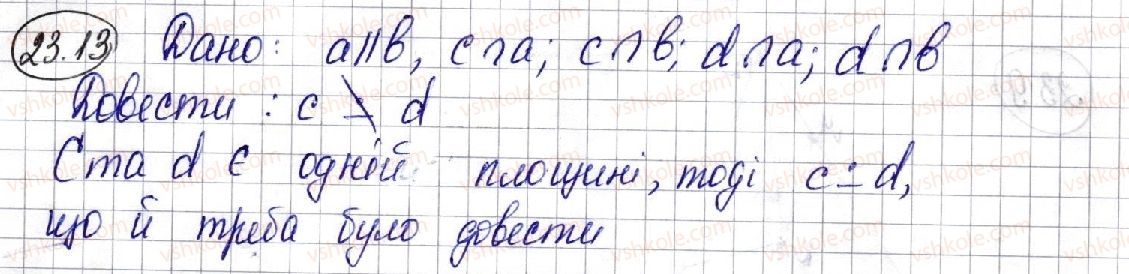 23.13 Дано: a||b, c∩a; c∩b; d∩a; d∩b
Довести: c ∸ d
С та d є одній площині, тоді c ∸ d,
що й треба було довести